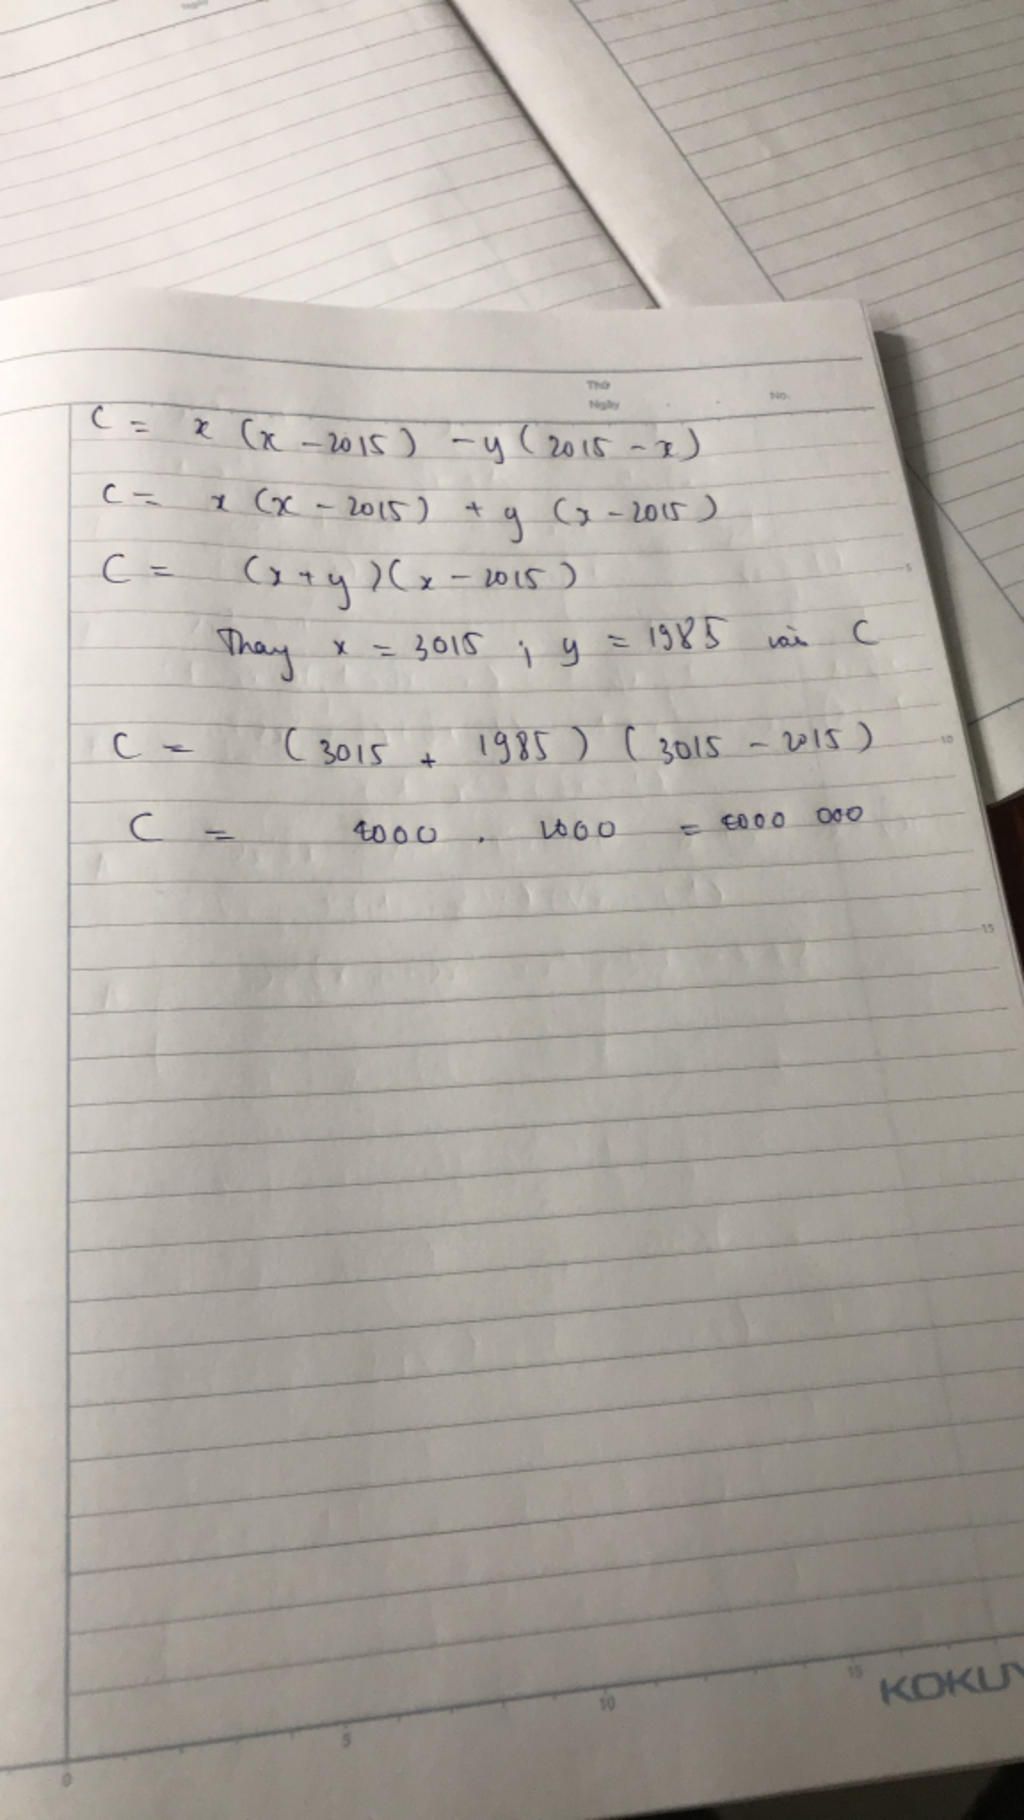 Ngày
Thứ
Ngày
No.
C = x (x - 2015) - y (2015 - x)
C = x (x - 2015) + y (x - 2015)
C = (x + y)(x - 2015)
5
Thay x = 3015 ; y = 1985 vào C
C = (3015 + 1985) (3015 - 2015)
10
C = . 1000 = 000
15
0
5
10
15
KOKUY